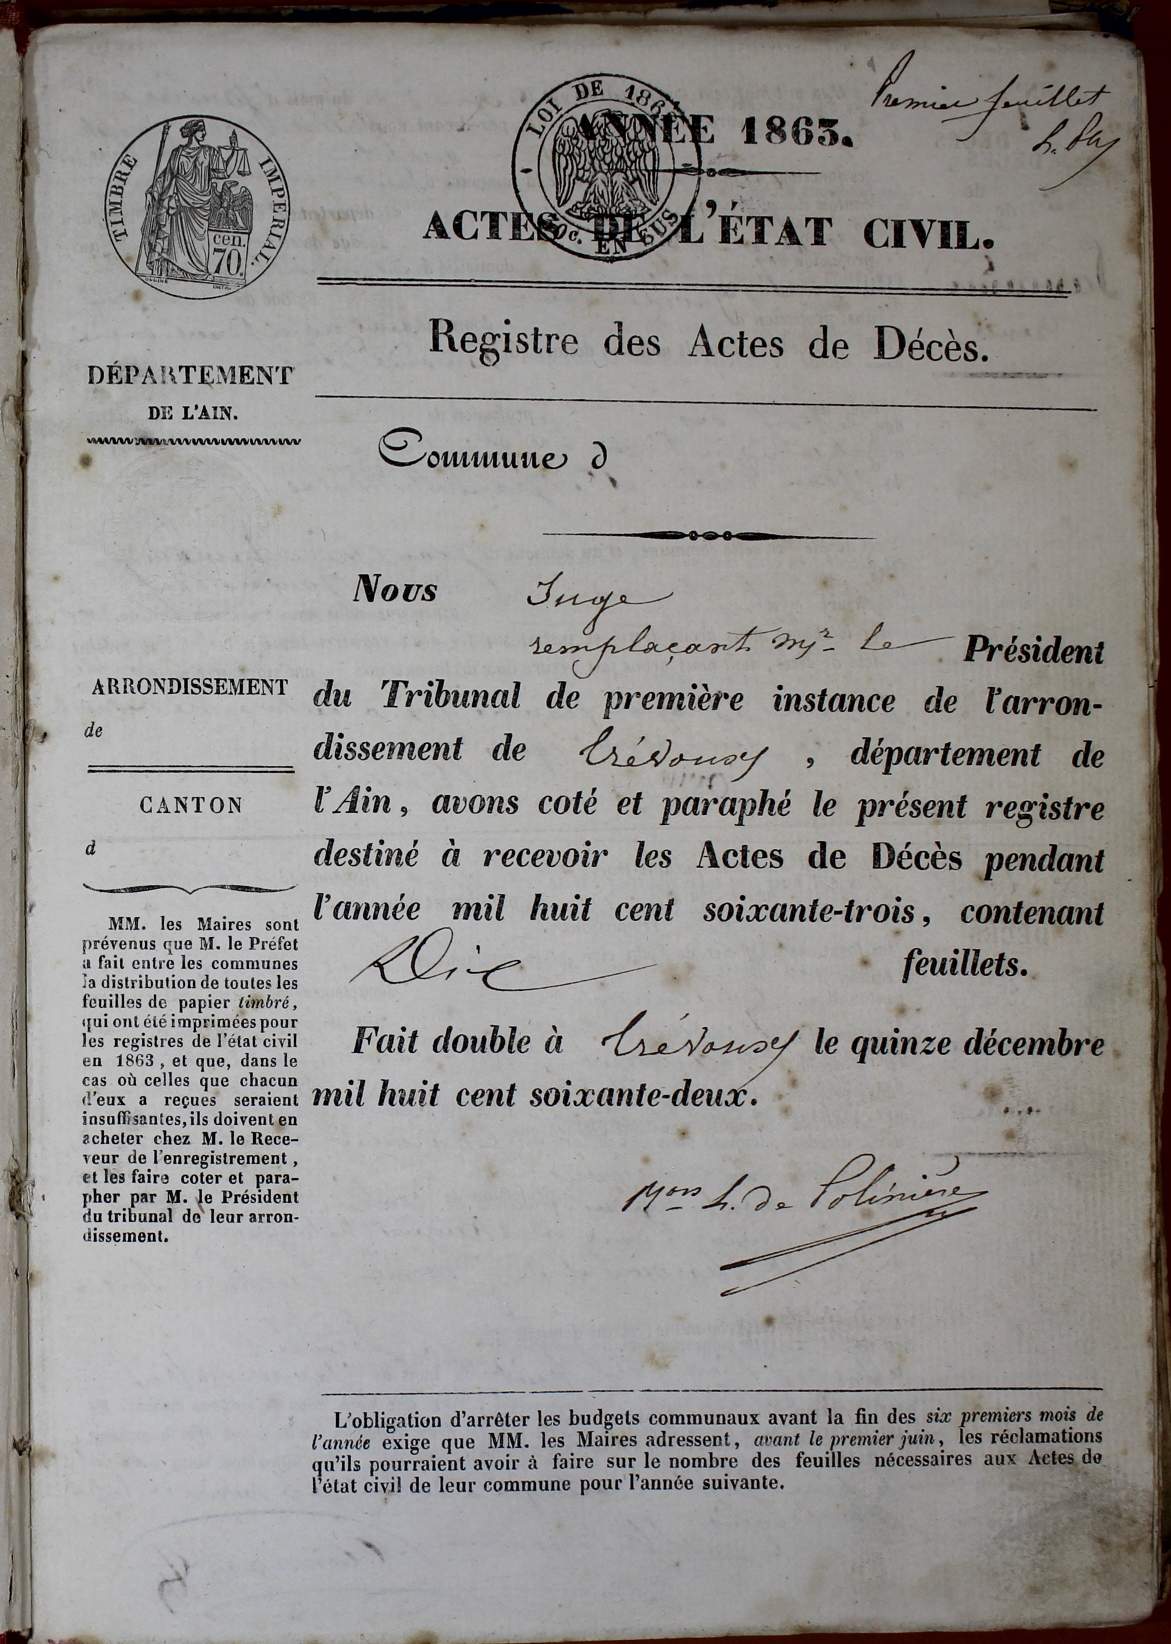 Premier feuillet
LOI DE 186
EN SUS
ANNÉE 1863.
TIMBRE IMPERIAL.
cen.
70.
ACTES DE L'ÉTAT CIVIL.
Registre des Actes de Décès.
DÉPARTEMENT
DE L'AIN.
Commune d
ARRONDISSEMENT
de
CANTON
d
MM. les Maires sont
prévenus que M. le Préfet
a fait entre les communes
la distribution de toutes les
feuilles de papier timbré,
qui ont été imprimées pour
les registres de l'état civil
en 1863, et que, dans le
cas où celles que chacun
d'eux a reçues seraient
insuffisantes, ils doivent en
acheter chez M. le Rece-
veur de l'enregistrement,
et les faire coter et para-
pher par M. le Président
du tribunal de leur arron-
dissement.
Nous Juge
remplaçant Mr. le Président
du Tribunal de première instance de l'arron-
dissement de Trévoux, département de
l'Ain, avons coté et paraphé le présent registre
destiné à recevoir les Actes de Décès pendant
l'année mil huit cent soixante-trois, contenant
Dix feuillets.
Fait double à Trévoux le quinze décembre
mil huit cent soixante-deux.
h. de Polinière
L'obligation d'arrêter les budgets communaux avant la fin des six premiers mois de
l'année exige que MM. les Maires adressent, avant le premier juin, les réclamations
qu'ils pourraient avoir à faire sur le nombre des feuilles nécessaires aux Actes de
l'état civil de leur commune pour l'année suivante.